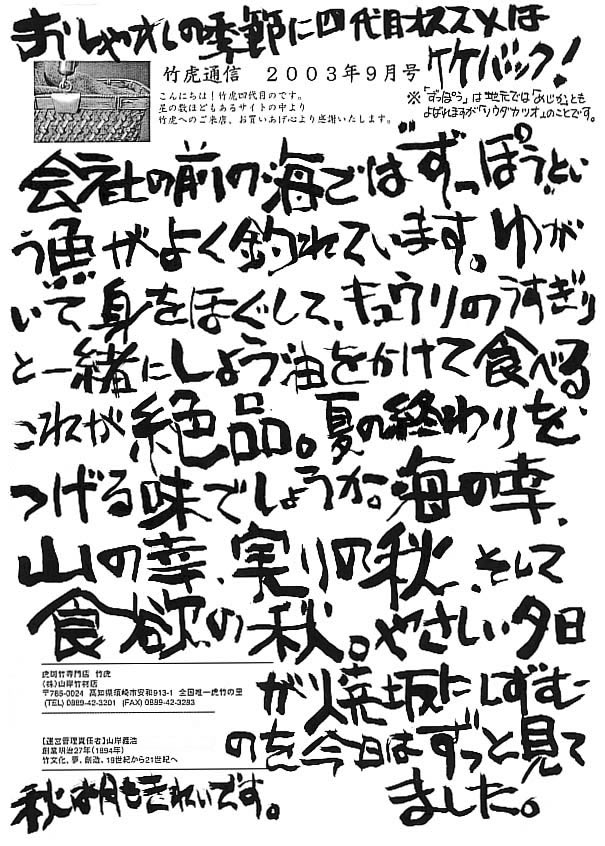 おしゃれの季節に四代目オススメは
竹バッグ!
竹虎通信 2003年9月号
こんにちは!竹虎四代目のです。
星の数ほどもあるサイトの中より
竹虎へのご来店、お買いあげ心より感謝いたします。
※「ずっぽう」は地元では「めじか」とも
よばれますが「ソウダカツオ」のことです。
会社の前の海では"ずっぽう"とい
う魚がよく釣れています。ゆが
いて身をほぐして、キュウリのうすぎり
と一緒にしょう油をかけて食べる
これが絶品。夏の終わりを
つげる味でしょうか。海の幸、
山の幸、実りの秋、そして
食欲の秋。やさしい夕日
が焼坂にしずむ
のを今日はずっと見て
ました。
秋は月もきれいです。
虎斑竹専門店 竹虎
(株)山岸竹材店
〒785-0024 高知県須崎市安和913-1 全国唯一虎竹の里
(TEL) 0889-42-3201 (FAX) 0889-42-3283
【運営管理責任者】山岸義浩
創業明治27年(1894年)
竹文化、夢、創造、19世紀から21世紀へ